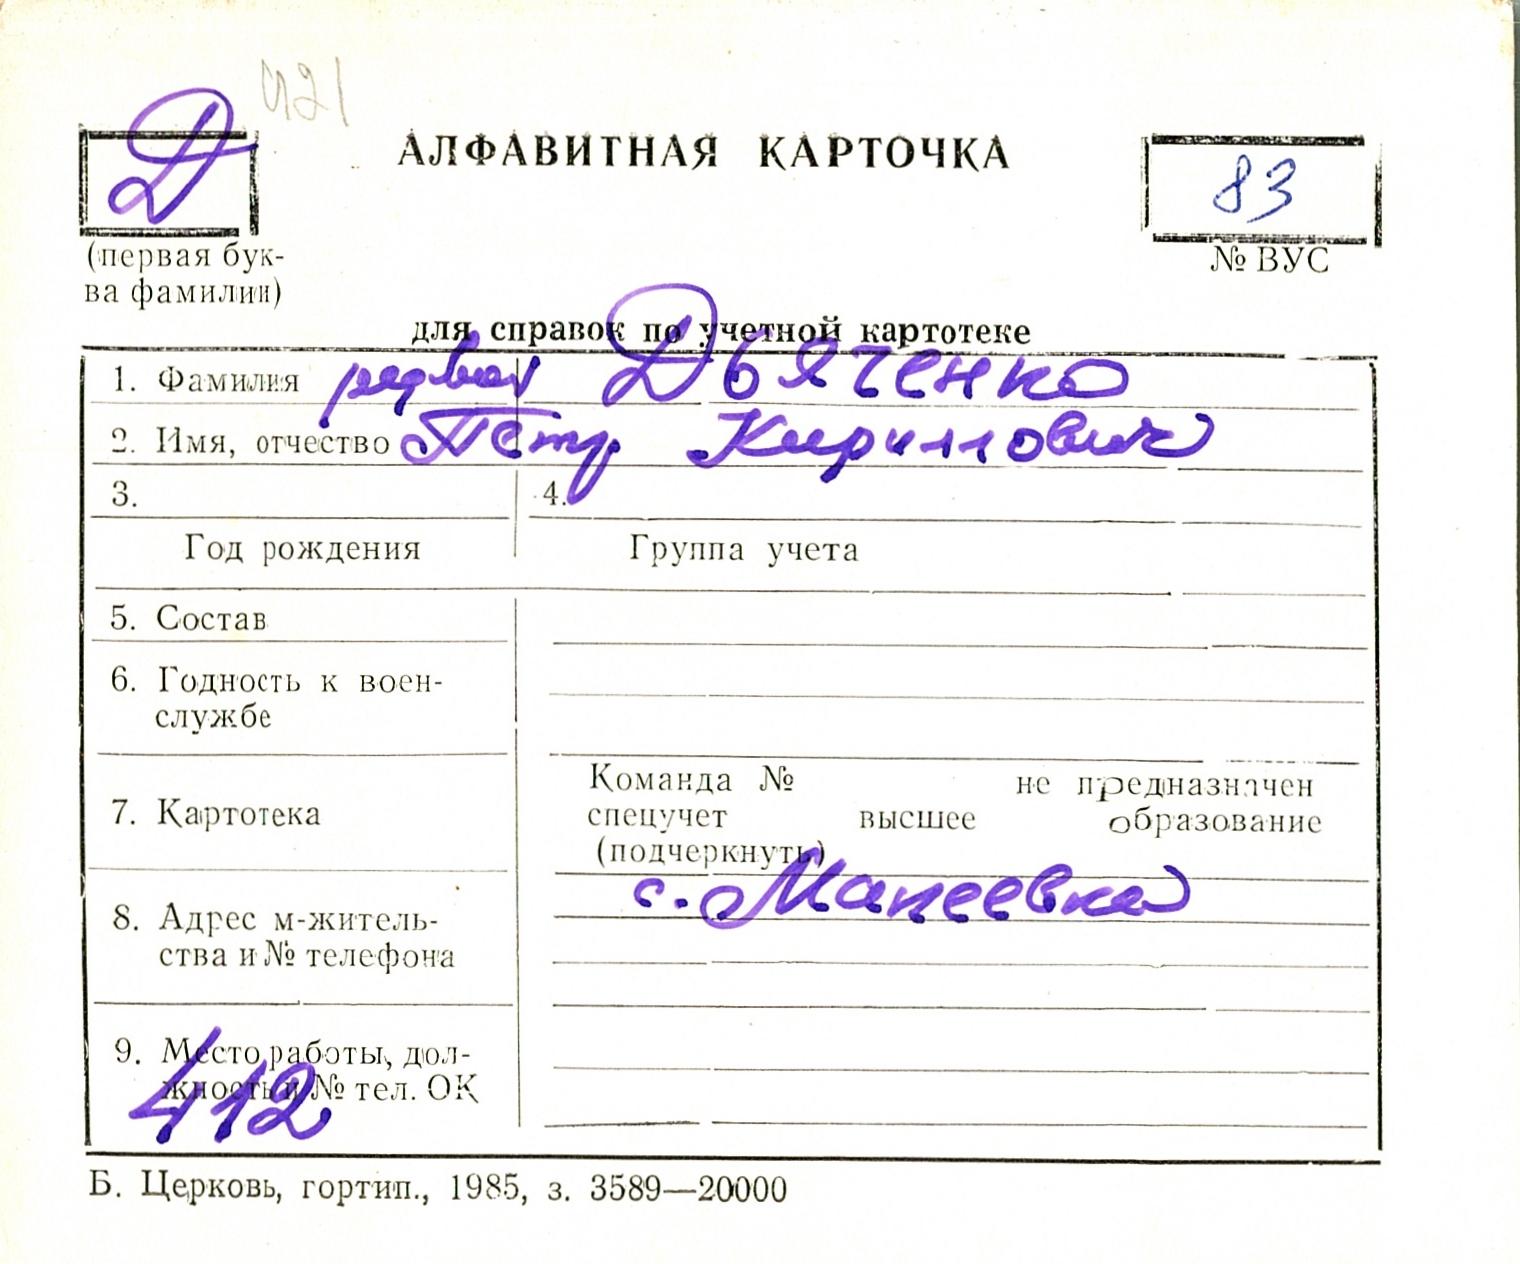 421
Д
АЛФАВИТНАЯ КАРТОЧКА
83
(первая бук-
ва фамилии)
№ ВУС
для справок по учетной картотеке
1. Фамилия рядвой Дьяченко
2. Имя, отчество Петр Кириллович
3.
4.
Год рождения
Группа учета
5. Состав
6. Годность к воен-
службе
7. Картотека
Команда № не предназначен
спецучет высшее образование
(подчеркнуть)
8. Адрес м-житель-
ства и № телефона
с. Макеевка
9. Место работы, дол-
жность и № тел. ОК
412
Б. Церковь, гортип., 1985, з. 3589—20000